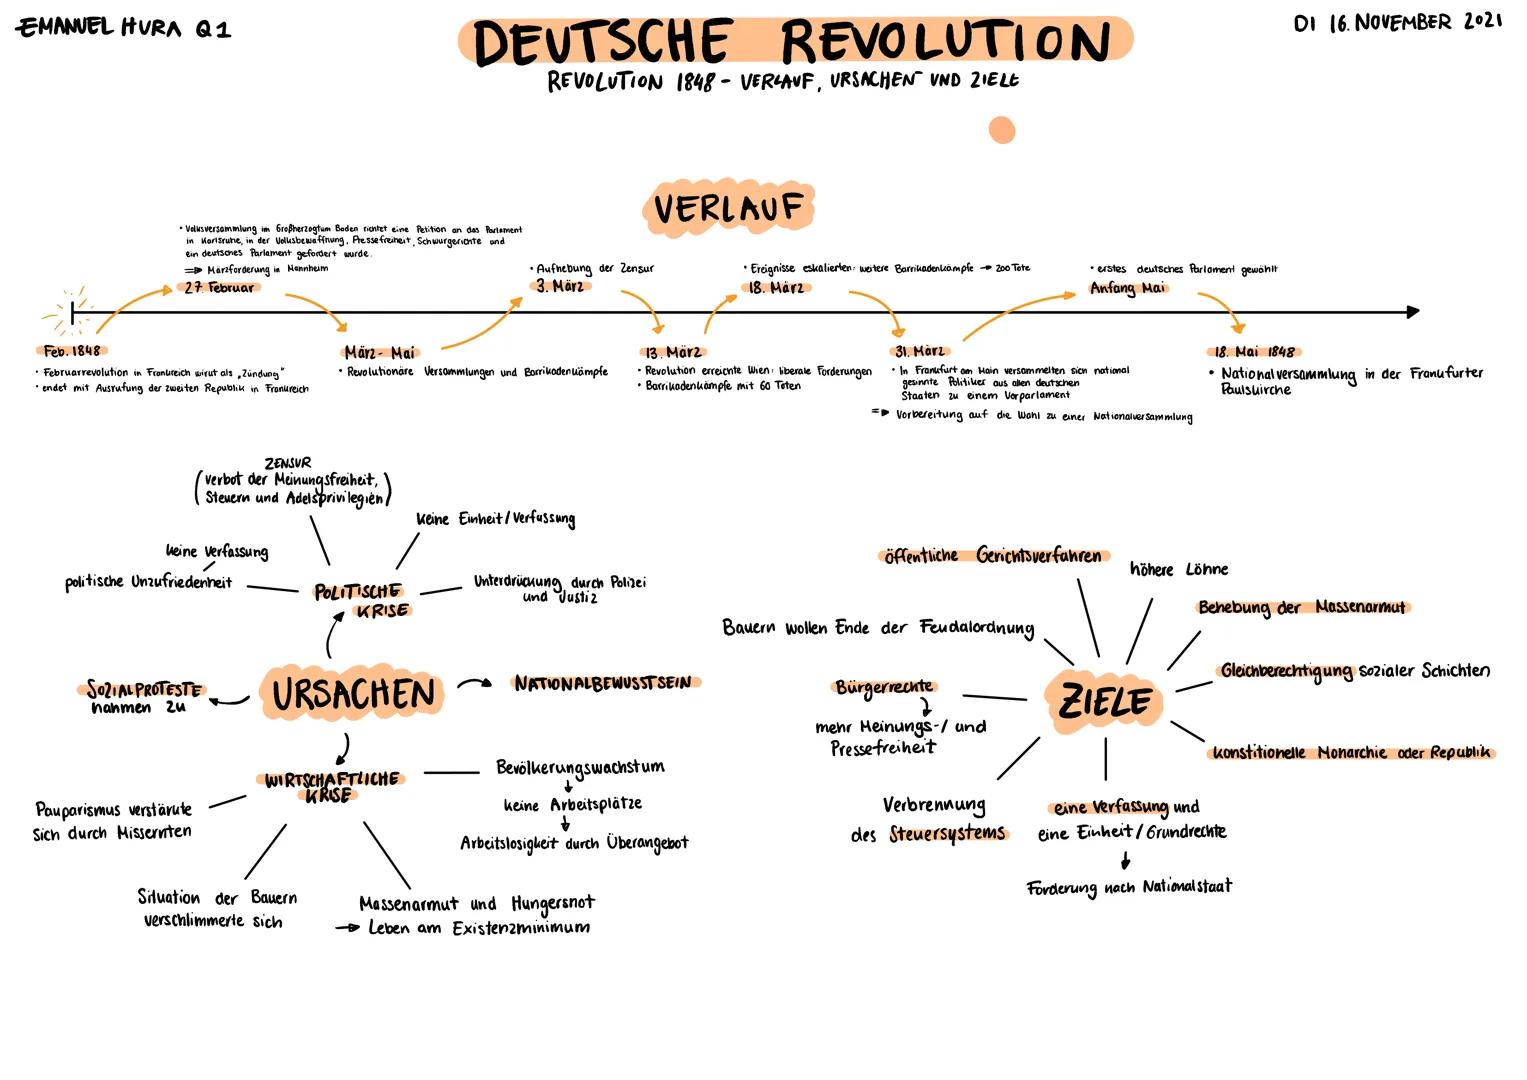 EMANUEL HURA Q1
DEUTSCHE REVOLUTION
DI 16. NOVEMBER 2021
REVOLUTION 1848 - VERLAUF, URSACHEN UND ZIELE
VERLAUF
• Volksversammlung im Großherzogtum Baden richtet eine Petition an das Parlament
in Karlsruhe, in der Volksbewaffnung, Pressefreiheit, Schwurgerichte und
ein deutsches Parlament gefordert wurde.
⇒ Märzforderung in Mannheim
27. Februar
• Aufhebung der Zensur
3. März
• Ereignisse eskalierten: weitere Barrikadenkämpfe → 200 Tote
18. März
• erstes deutsches Parlament gewählt
Anfang Mai
Feb. 1848
• Februarrevolution in Frankreich wirkt als „Zündung"
• endet mit Ausrufung der zweiten Republik in Frankreich
März - Mai
• Revolutionäre Versammlungen und Barrikadenkämpfe
13. März
• Revolution erreichte Wien: liberale Forderungen
• Barrikadenkämpfe mit 60 Toten
31. März
• In Frankfurt am Main versammelten sich national
gesinnte Politiker aus allen deutschen
Staaten zu einem Vorparlament
⇒ Vorbereitung auf die Wahl zu einer Nationalversammlung
18. Mai 1848
• Nationalversammlung in der Frankfurter
Paulskirche
ZENSUR
(verbot der Meinungsfreiheit,
Steuern und Adelsprivilegien)
keine Einheit/Verfassung
keine Verfassung
politische Unzufriedenheit
POLITISCHE
KRISE
Unterdrückung durch Polizei
und Justiz
SOZIALPROTESTE
nahmen zu
URSACHEN
NATIONALBEWUSSTSEIN
WIRTSCHAFTLICHE
KRISE
Bevölkerungswachstum
keine Arbeitsplätze
Arbeitslosigkeit durch Überangebot
Pauparismus verstärkte
sich durch Missernten
Situation der Bauern
verschlimmerte sich
Massenarmut und Hungersnot
→ Leben am Existenzminimum
öffentliche Gerichtsverfahren
höhere Löhne
Behebung der Massenarmut
Bauern wollen Ende der Feudalordnung
Gleichberechtigung sozialer Schichten
Bürgerrechte
mehr Meinungs-/ und
Pressefreiheit
ZIELE
konstitionelle Monarchie oder Republik
Verbrennung
des Steuersystems
eine Verfassung und
eine Einheit / Grundrechte
Forderung nach Nationalstaat